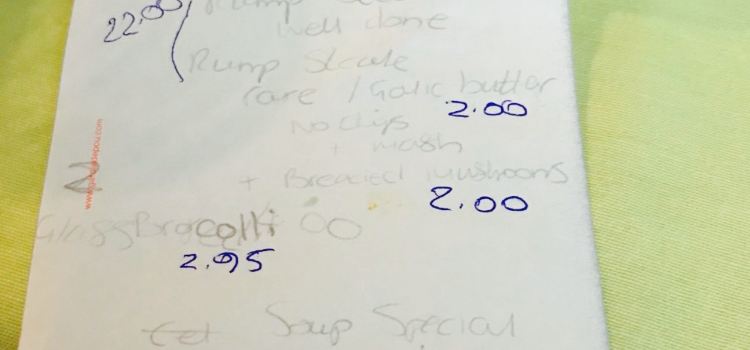 22.00 Rump
well done
Rump Steak
rare / Galic butter
2.00
No chips
+ mash
+ Breaded mushrooms
2.00
Brocolli
2.95
Soup Special